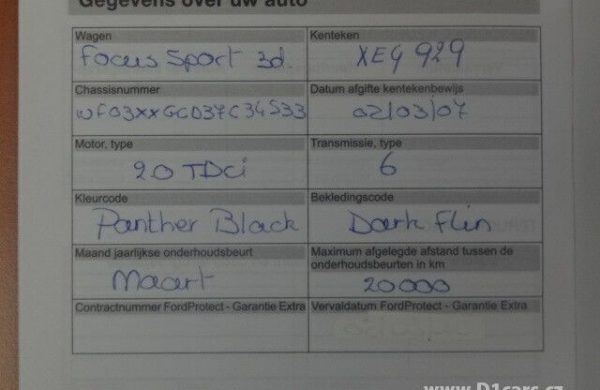 Gegevens over uw auto
Wagen
Focus Sport 3d.
Kenteken
XEG 929
Chassisnummer
Datum afgifte kentekenbewijs
02/03/07
Motor, type
2.0 TDCi
Transmissie, type
6
Kleurcode
Panther Black
Bekledingscode
Dark Flin
Maand jaarlijkse onderhoudsbeurt
Maart
Maximum afgelegde afstand tussen de
onderhoudsbeurten in km
20000
Contractnummer FordProtect - Garantie Extra
Vervaldatum FordProtect - Garantie Extra
www.D1cars.cz